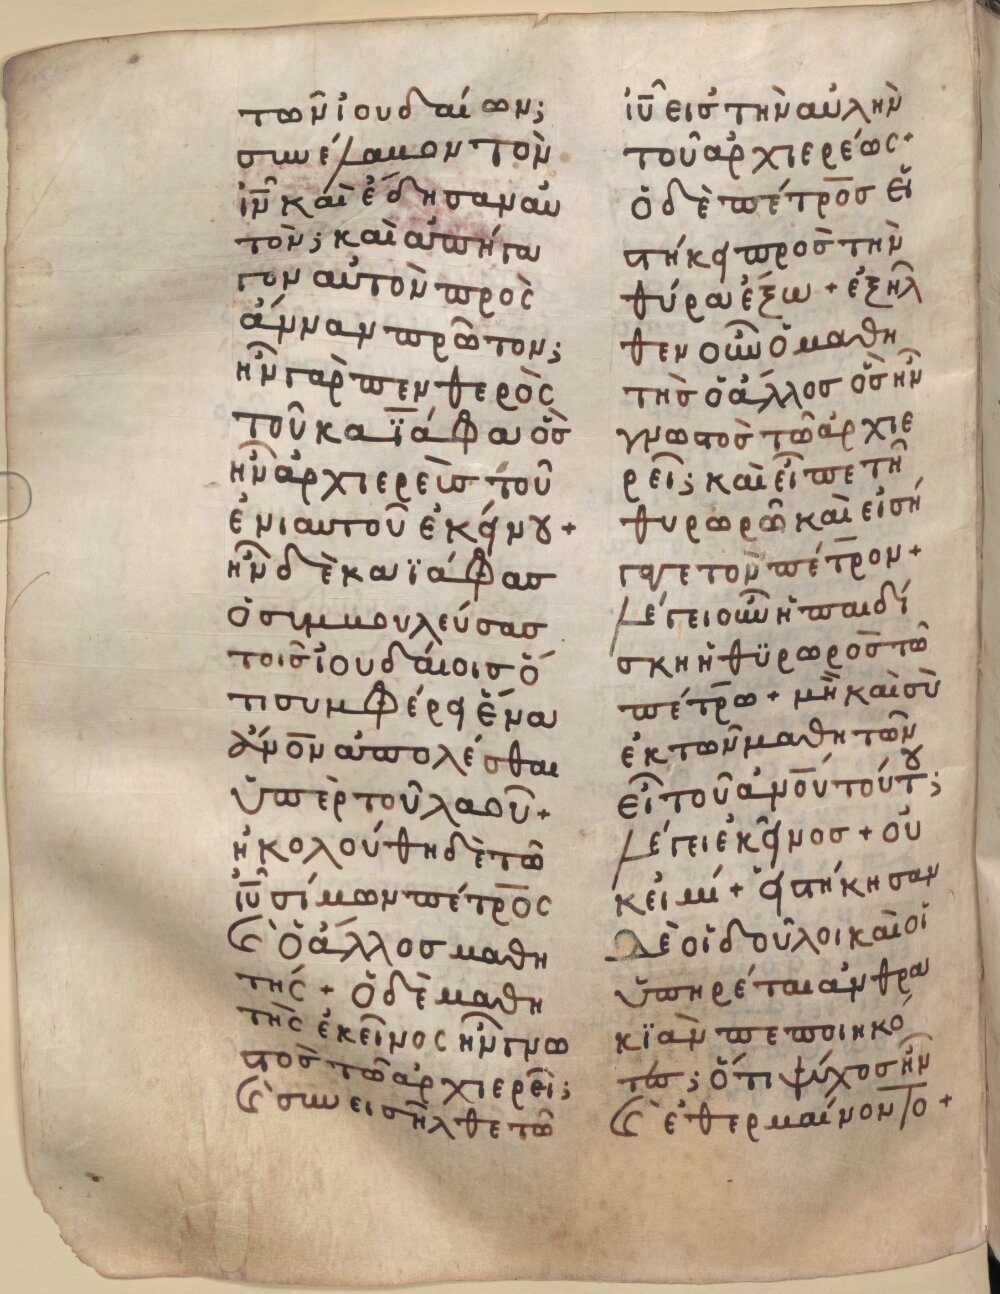 τῶν ἰουδαίων;
συνέλαβον τὸν
ἰν̅ καὶ ἔδησαν αὐ
τὸν; καὶ ἀπήγα
γον αὐτὸν πρὸς
ἄνναν πρῶτον;
ἦν γὰρ πενθερὸς
τοῦ καϊάφα ὃς
ἦν ἀρχιερεὺς τοῦ
ἐνιαυτοῦ ἐκείνου +
ἦν δὲ καϊάφας
ὁ συμβουλεύσας
τοῖς ἰουδαίοις ὅ
τι συμφέρει ἕνα
ἄν̅ον ἀπολέσθαι
ὑπὲρ τοῦ λαοῦ +
ἠκολούθη δὲ τῶ
ἰυ̅ σίμων πέτρος
κ(αὶ) ὁ ἄλλος μαθη
τής + ὁ δὲ μαθη
τὴς ἐκεῖνος ἦν γνω
στὸς τῶ ἀρχιερεῖ;
κ(αὶ) συνεισῆλθε τῶ
ἰυ̅ εἰς τὴν αὐλὴν
τοῦ ἀρχιερέως +
ὁ δὲ πέτρος εἱ
στήκει πρὸς τὴν
θύρα ἔξω + ἐξῆλ
θεν οὖν ὁ μαθη
τὴς ὁ ἄλλος ὃς ἦν
γνωστὸς τῶ ἀρχιε
ρεῖ; καὶ εἶπε τῆ
θυρωρῶ καὶ εἰσή
γαγε τὸν πέτρον +
λέγει οὖν ἡ παιδί
σκη ἡ θϋρωρὸς τῶ
πέτρω + μὴ καὶ σὺ
ἐκ τῶν μαθητῶν
εἶ τοῦ ἀν̅ου τούτου;
λέγει ἐκεῖνος + οὐ
κ εἰμί + εἱστήκησαν
δὲ οἱ δοῦλοι καὶ οἱ
ὑπηρέται ἀνθρα
κϊὰν πεποιηκό
τες; ὅτι ψύχος ἦν
κ(αὶ) ἐθερμαίνοντο +